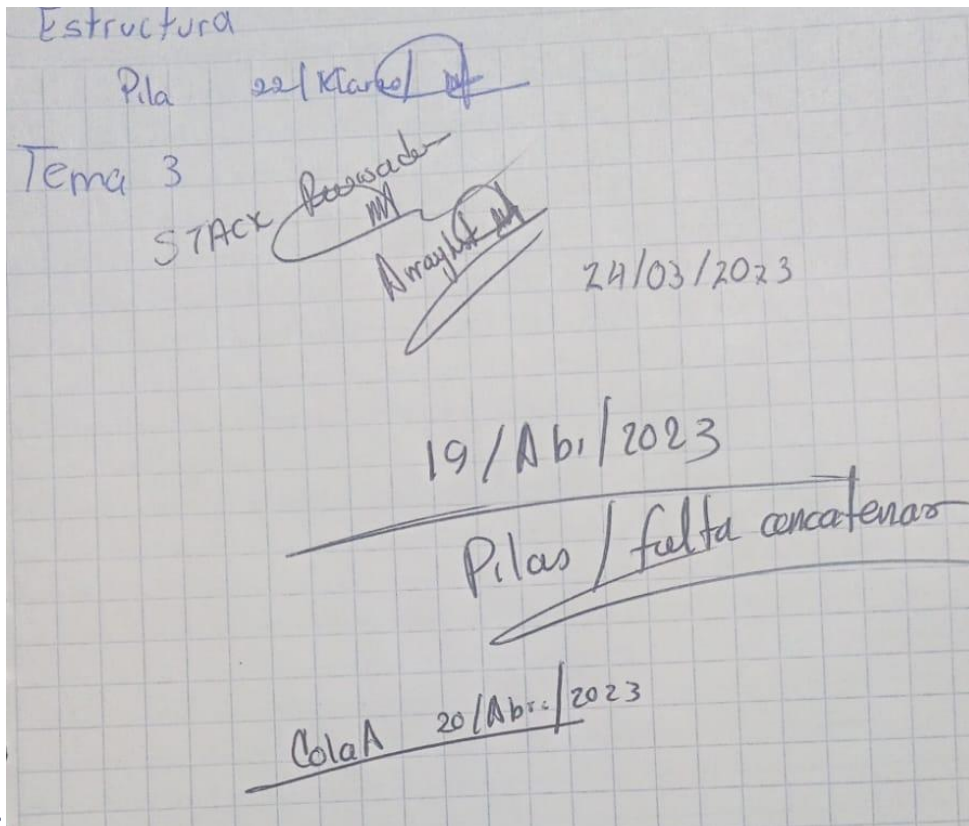 Estructura
Pila 22/Marzo/
Tema 3
STACK
ArrayList
24/03/2023
19/Abi/2023
Pilas / falta concatenar
ColaA 20/Abri/2023